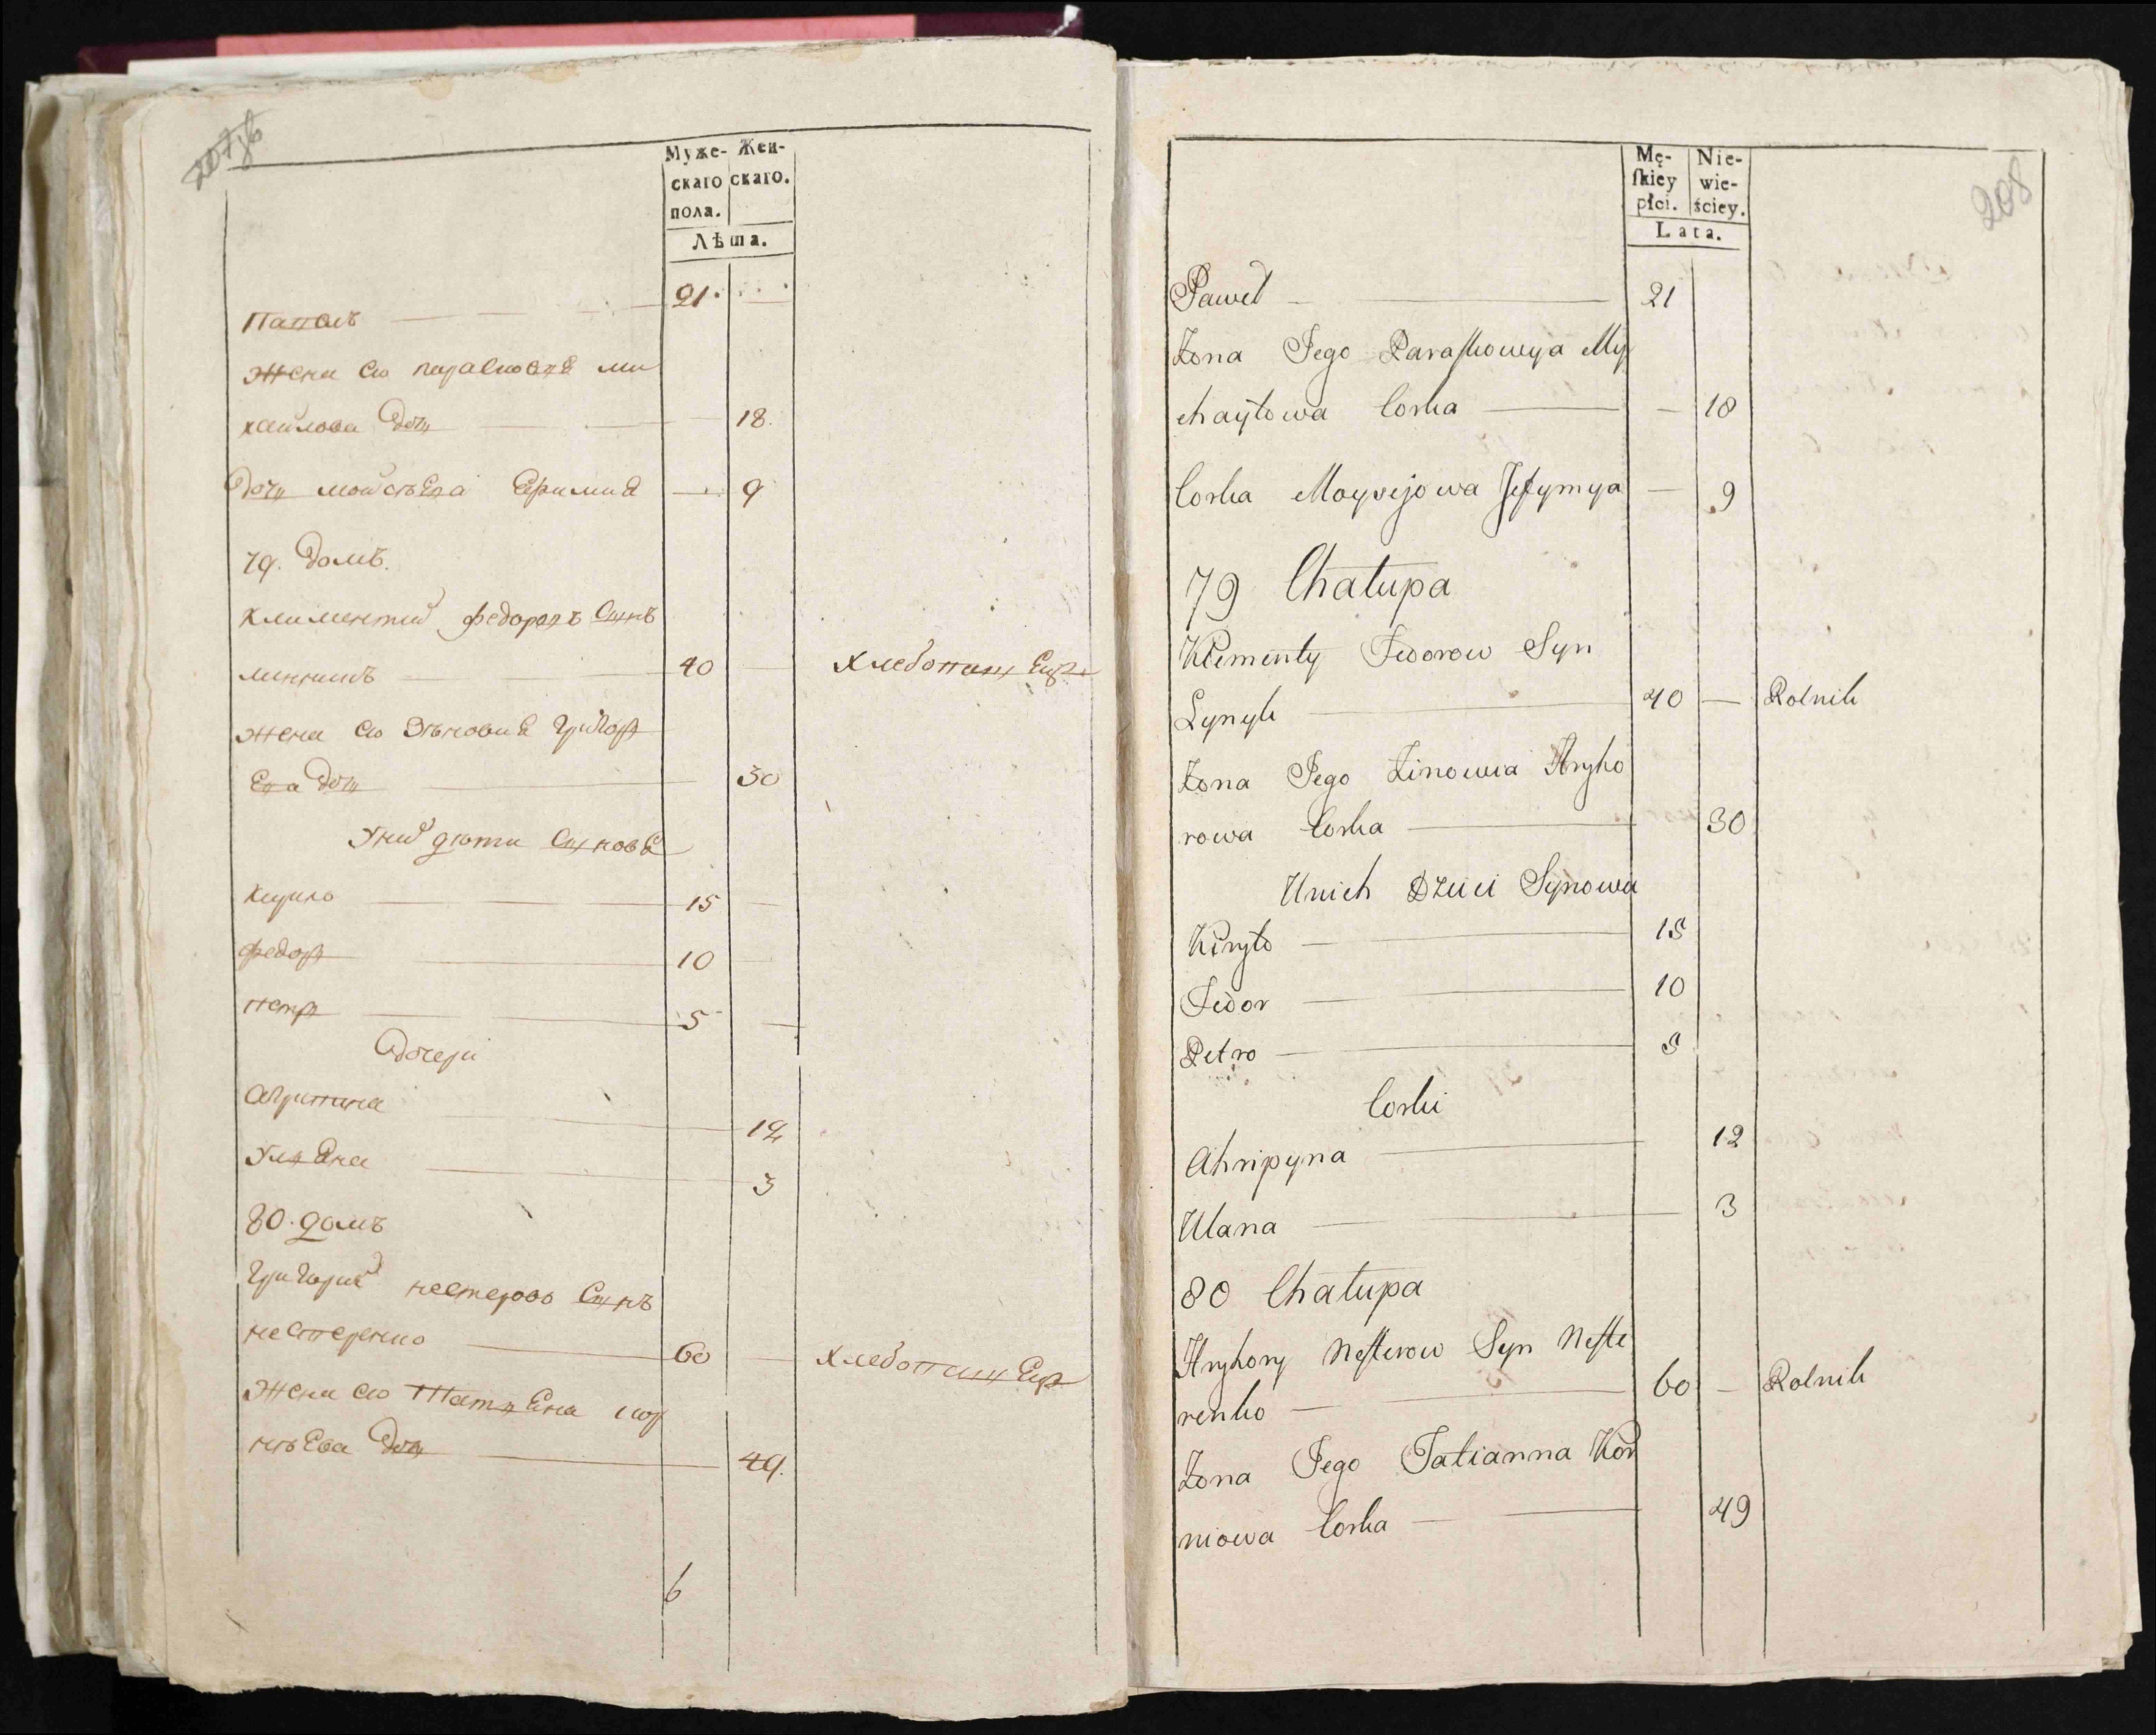 Муже- Жен-
скаго скаго.
пола.
Лѣта.
Павелъ 21.
жена его параскевия ми
хаилова дочь 18.
Дочь мойсѣева Ефимия 9
79. Домъ.
климентий федоровъ Сынъ
линникъ 40 хлебопашец
жена его Зѣновия григор
ева дочь 30
У них дѣти Сыновя
кирило 15
федор 10
петр 5
Дочери
Агрипина 12
Уляна 3
80. домъ
григорий нестеровъ Сынъ
нестеренко 60 хлебопашец
жена его Татяена кор
нѣева дочь 49.
6
208
Mę- Nie-
ſkiey wie-
płci. ściey.
Lata.
Paweł 21
Zona Jego Paraſkowyja My
chayłowa Corka 18
Corka Moysejowa Jefymya 9
79 Chałupa
Klementy Fedorow Syn
Lynyk 40 Rolnik
Zona Jego Zinowia Hryho
rowa Corka 30
Unich Dzieci Synowia
Kiryło 15
Fedor 10
Petro 5
Corki
Ahripyna 12
Ulana 3
80 Chałupa
Hryhory Neſterow Syn Neſte
renko 60 Rolnik
Zona Jego Tatianna Kor
niowa Corka 49